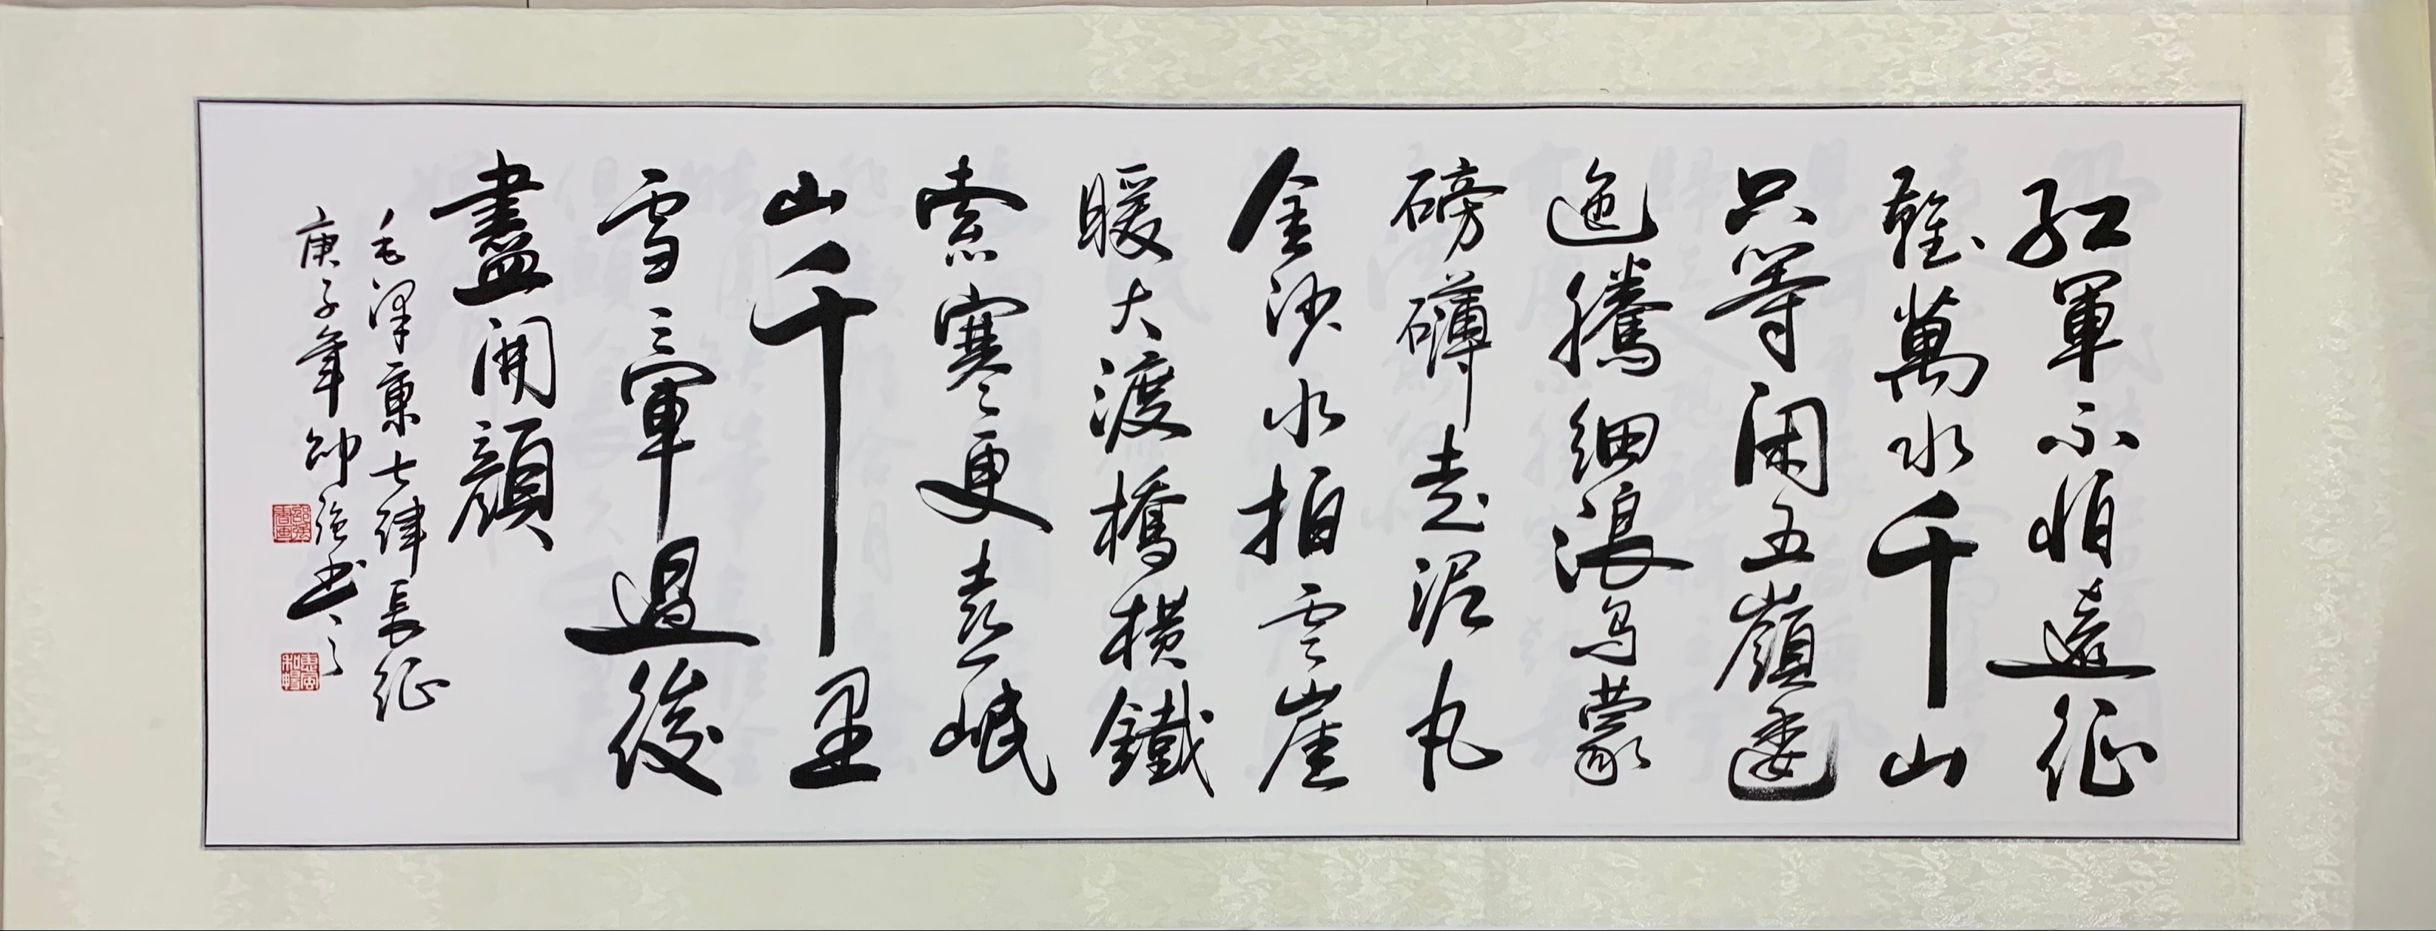 紅軍不怕遠征
難萬水千山
只等閑五嶺逶
迤騰細浪烏蒙
磅礴走泥丸
金沙水拍雲崖
暖大渡橋橫鐵
索寒更喜岷
山千里
雪三軍過後
盡開顏
毛澤東七律長征
庚子年帥強書